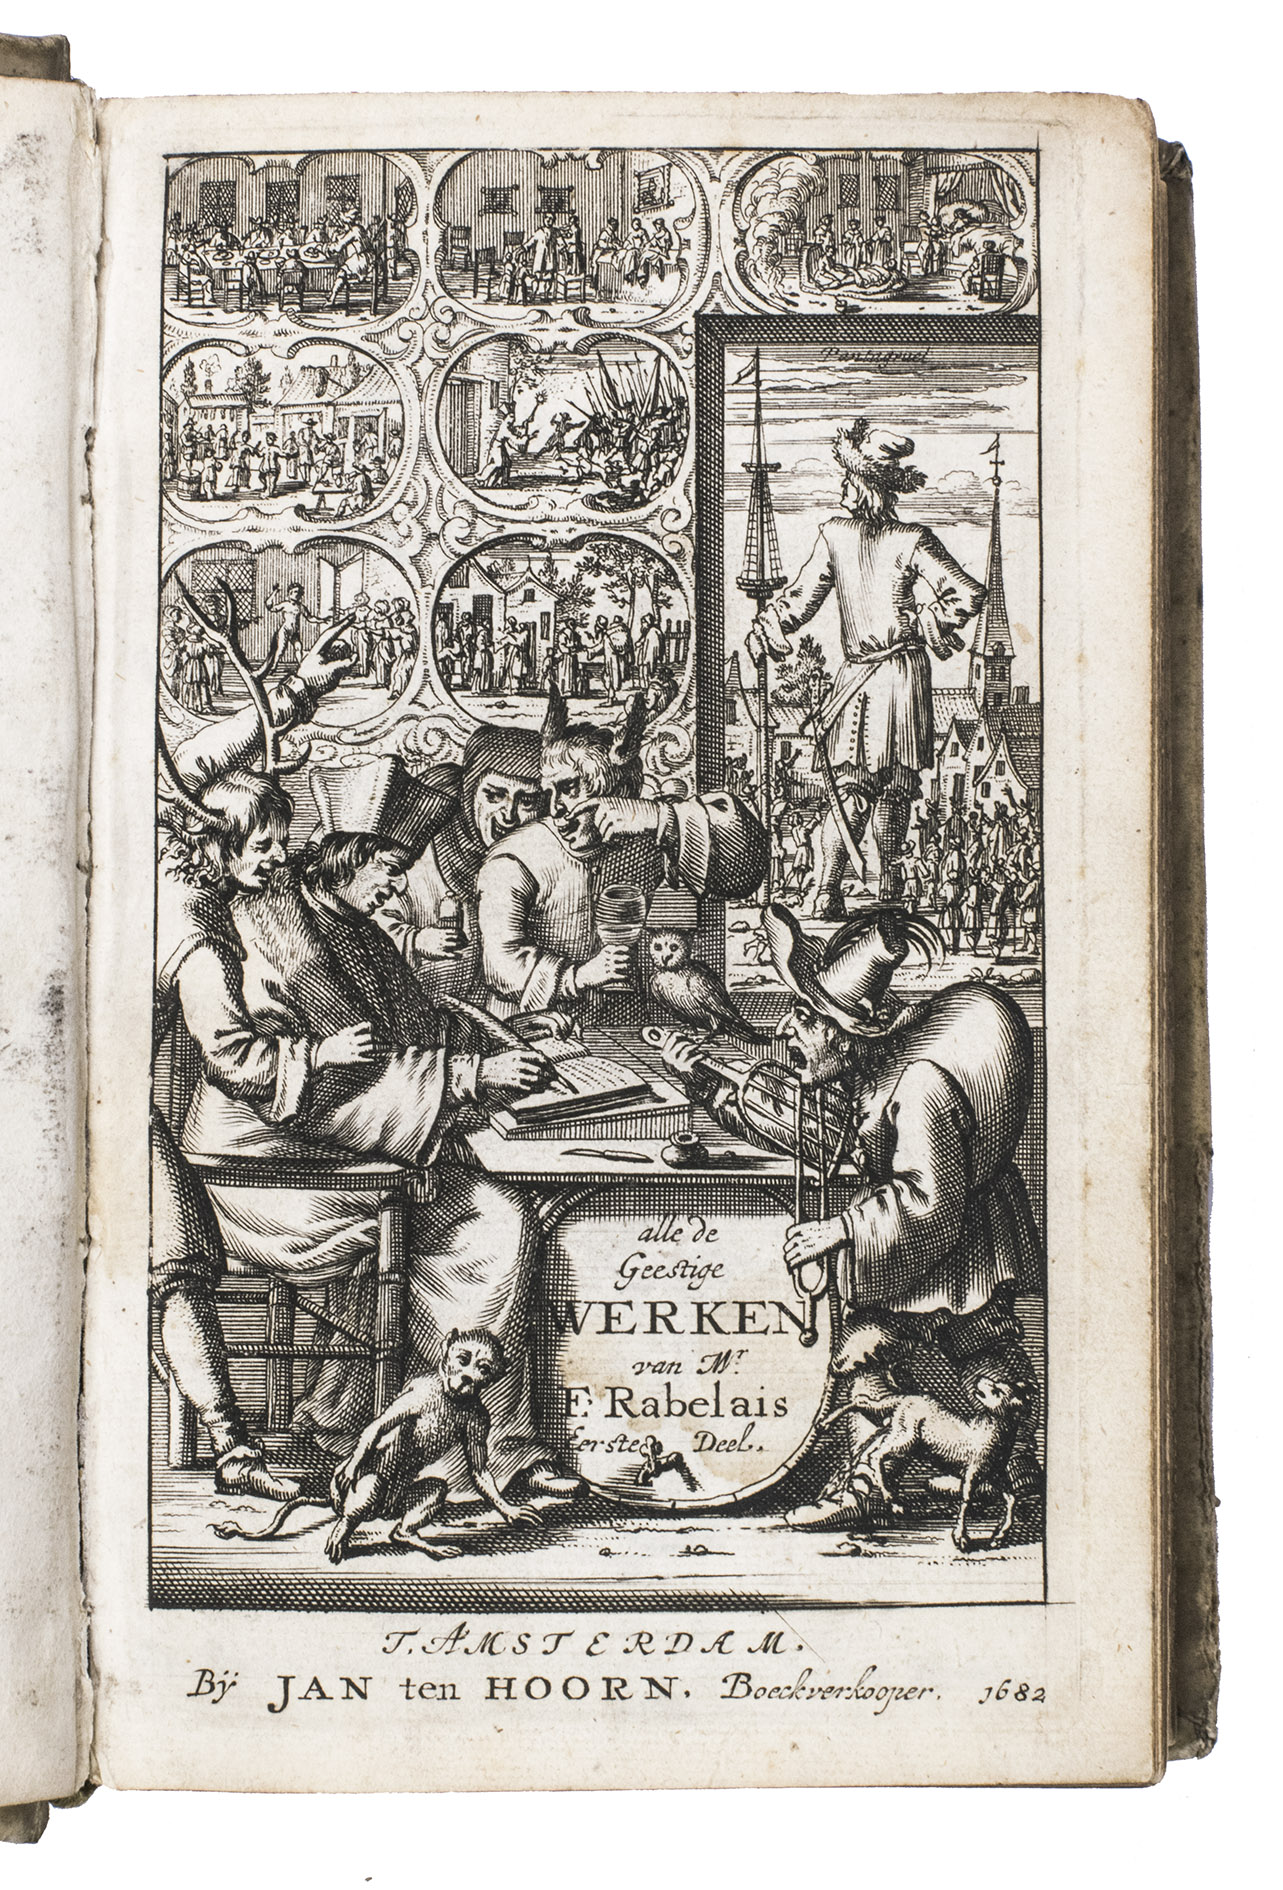 Pantagruel
alle de
Geestige
WERKEN
van Mr.
F. Rabelais
Eerste Deel.
T. AMSTERDAM.
Bÿ JAN ten HOORN. Boeckverkooper. 1682